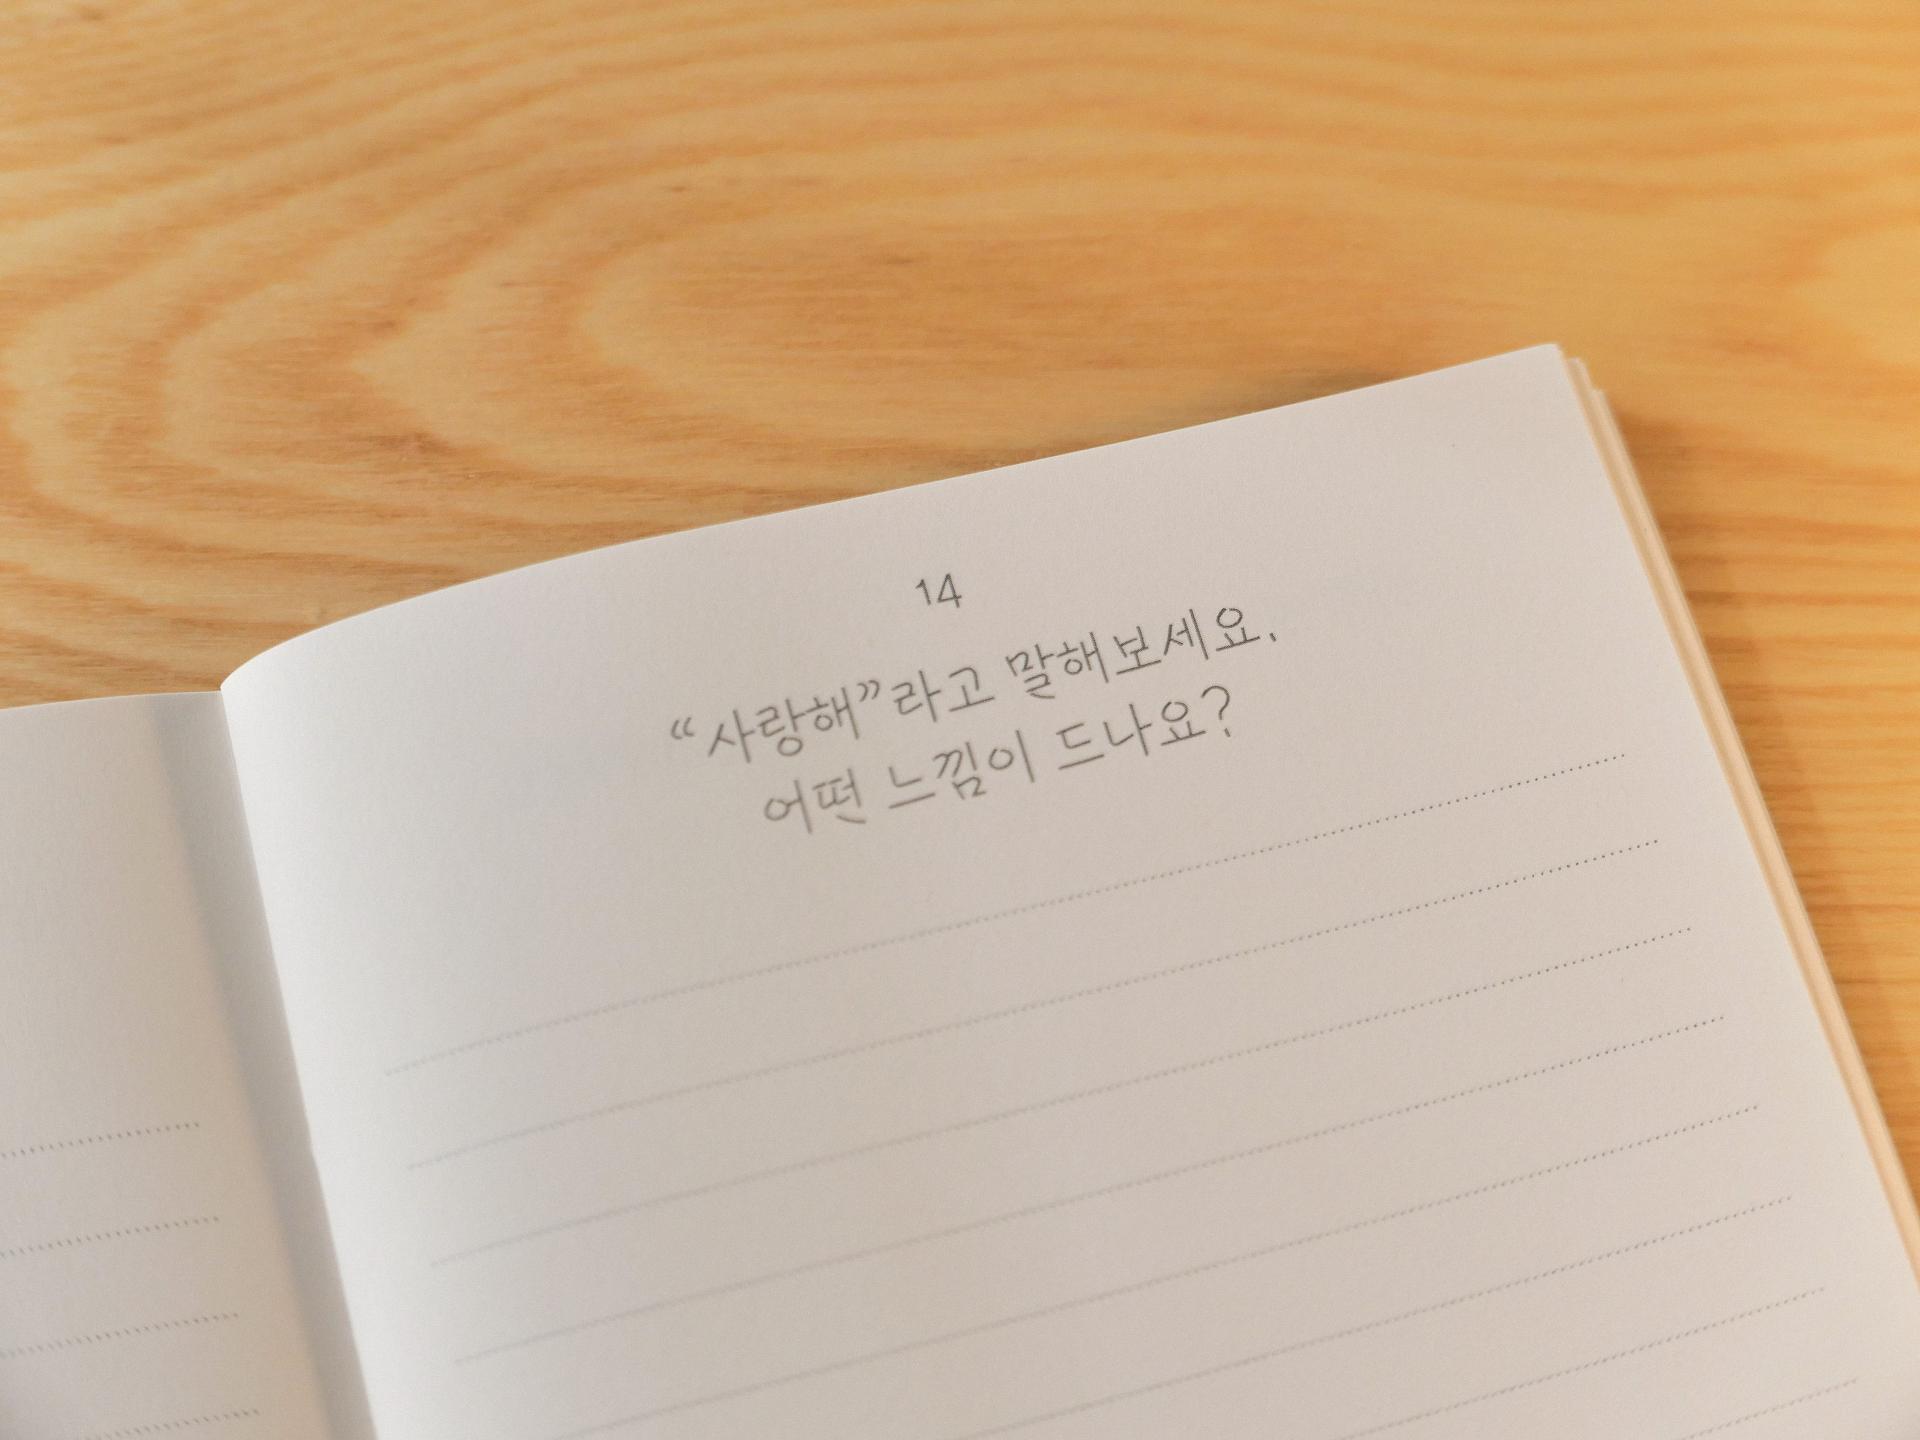 14
“사랑해”라고 말해보세요.
어떤 느낌이 드나요?